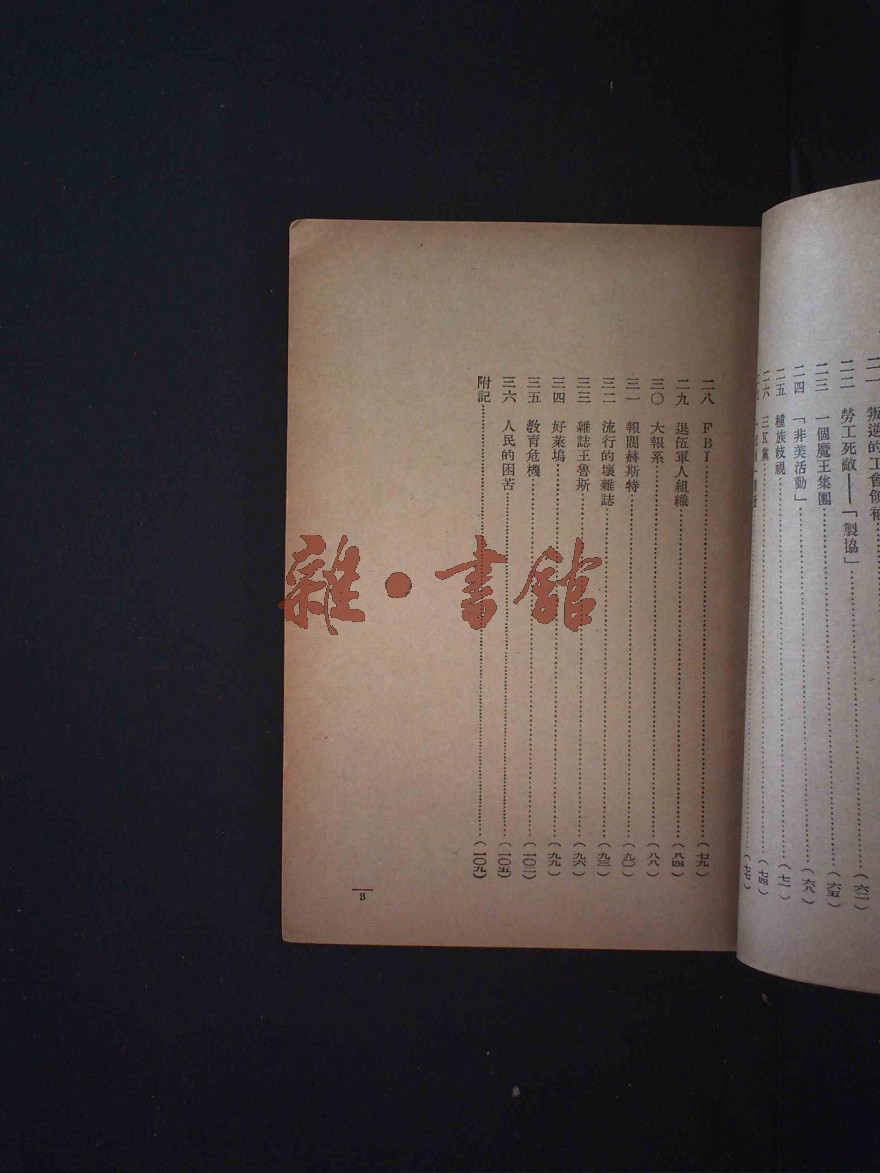 二一 叛逆的工會領袖
二二 勞工死敵——「製協」……(六二)
二三 一個魔王集團……(六五)
二四 「非美活動」……(六八)
二五 種族歧視……(七一)
二六 三K黨……(七四)
(七七)
二八 FBI……(七九)
二九 退伍軍人組織……(八四)
三〇 大報系……(八八)
三一 報閥赫斯特……(九〇)
三二 流行的壞雜誌……(九三)
三三 雜誌王魯斯……(九六)
三四 好萊塢……(九九)
三五 教育危機……(一〇二)
三六 人民的困苦……(一〇五)
附記……(一〇九)
3
雜·書館